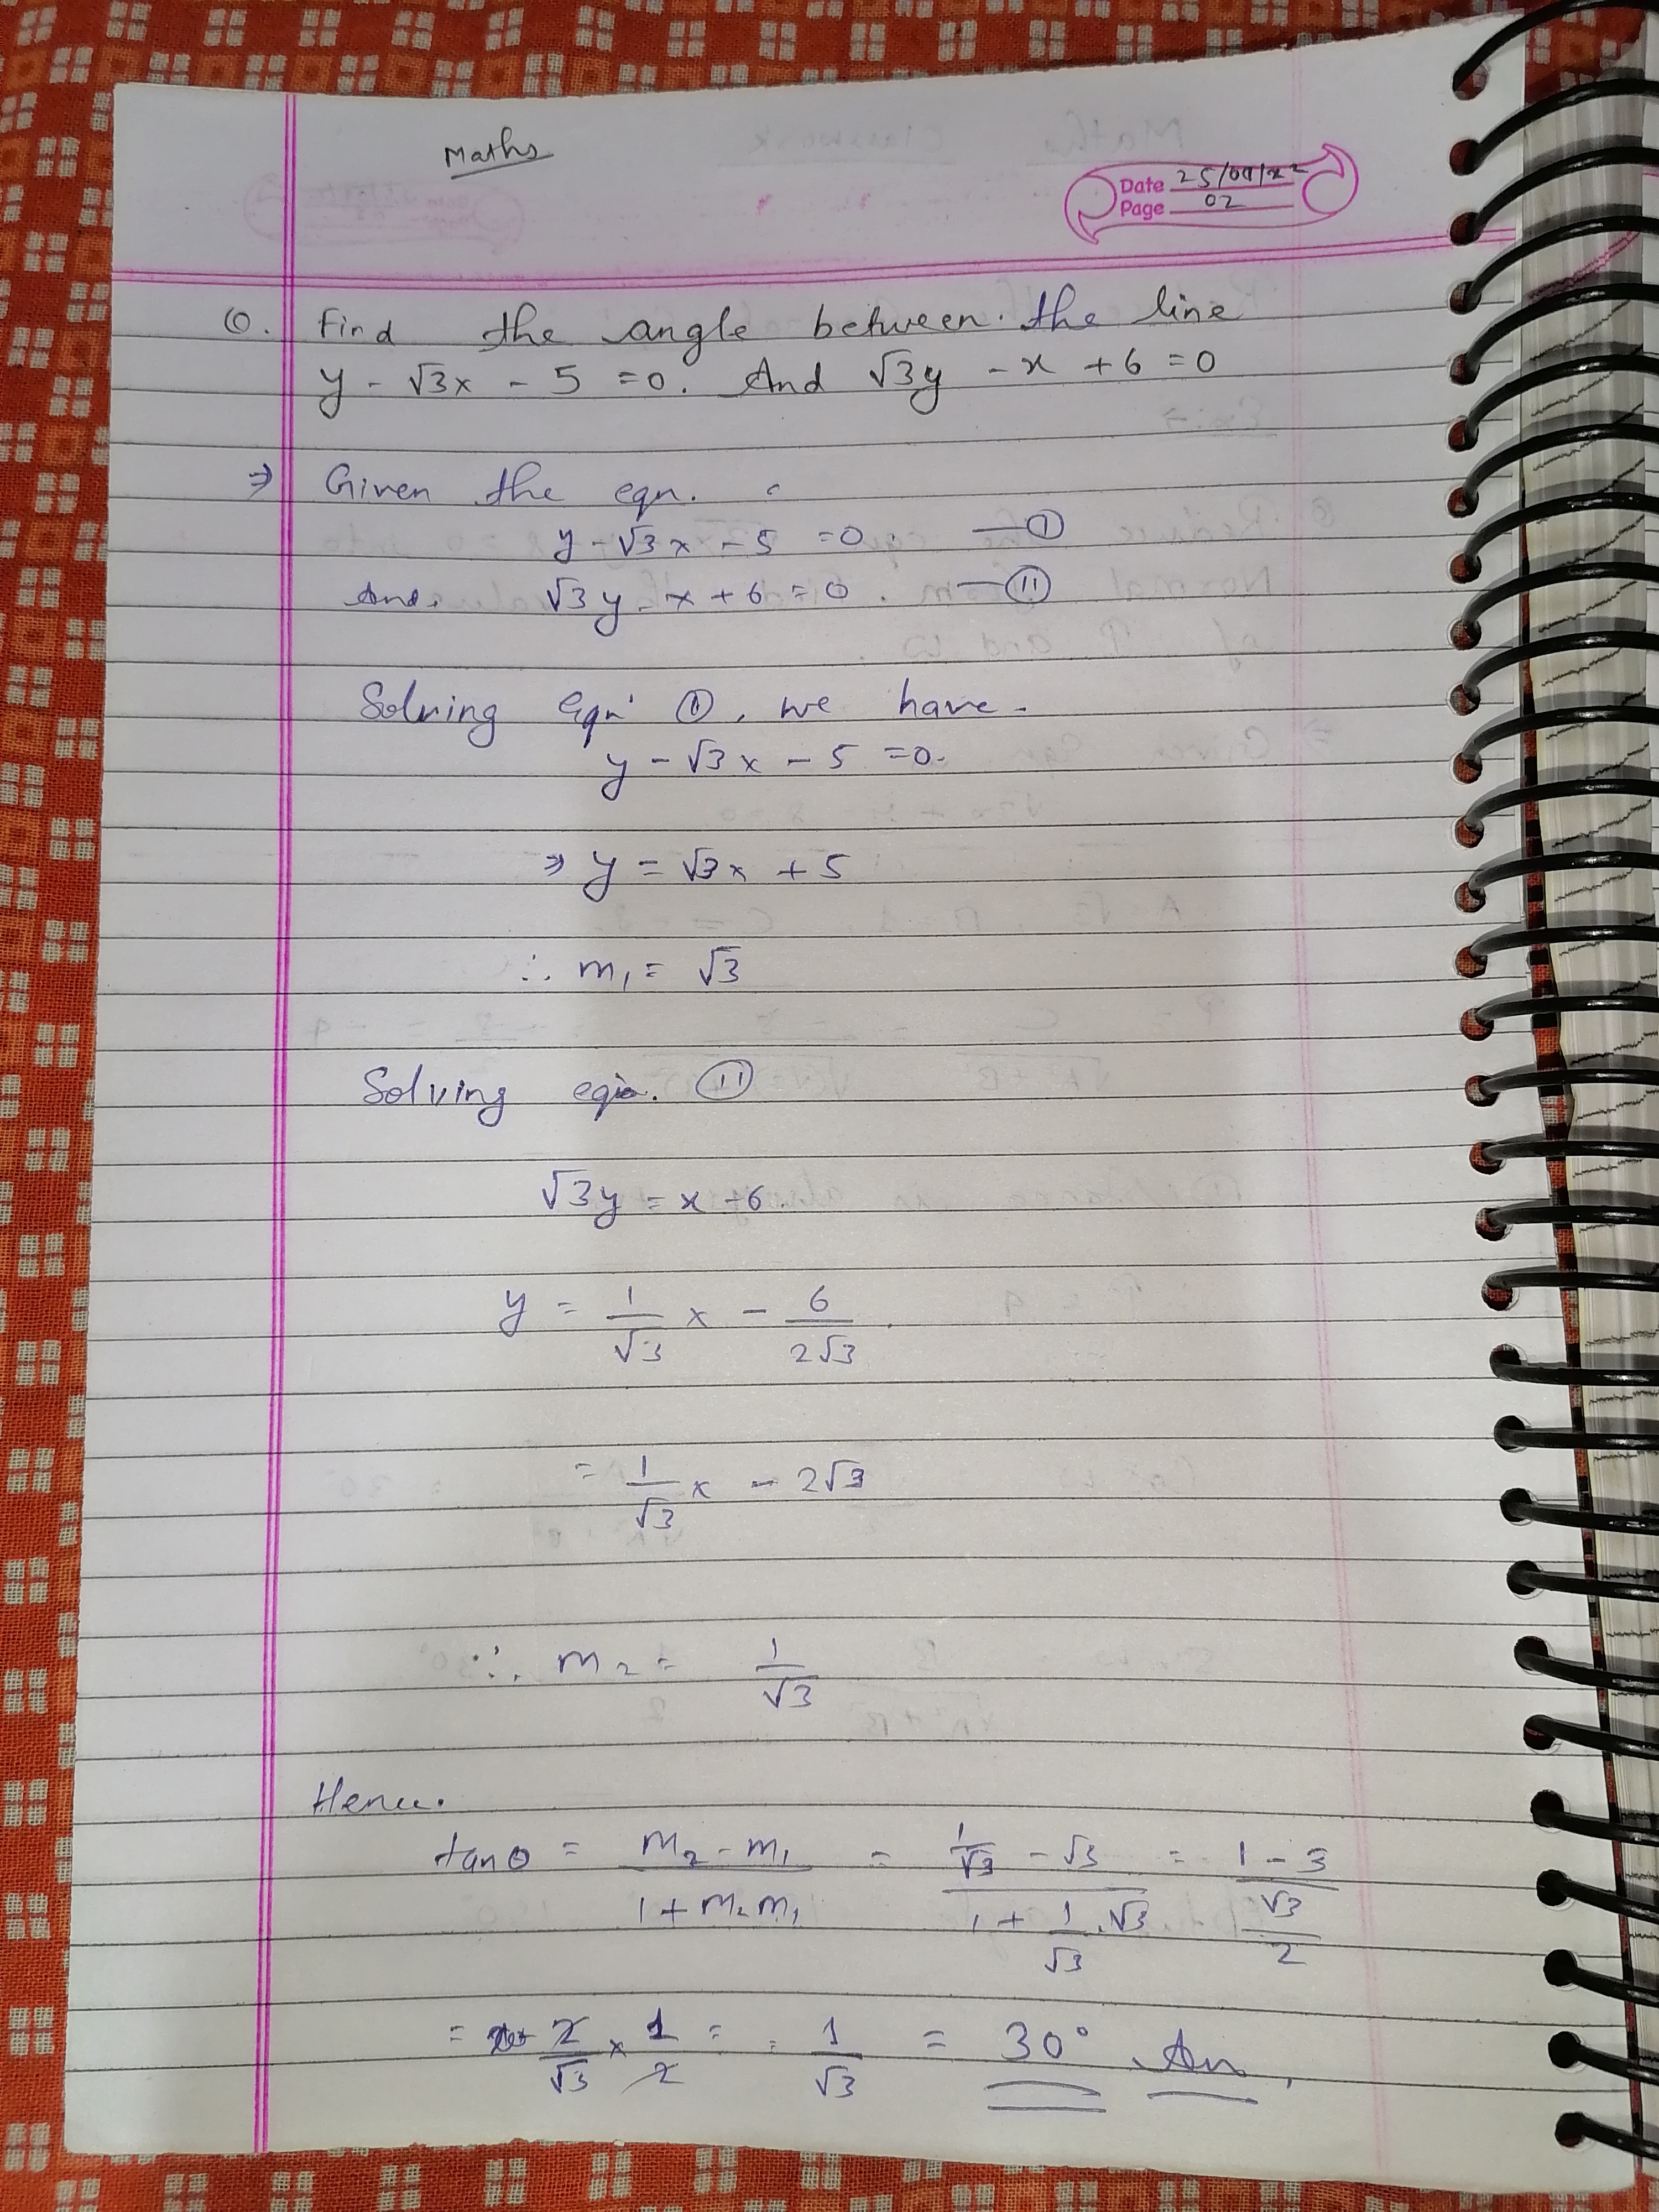 Maths
Date 25/09/22
Page 02
Q. Find the angle between the line
y - √3x - 5 = 0. And √3y - x + 6 = 0
⇒ Given the eqn.
y - √3x - 5 = 0. — (I)
And, √3y - x + 6 = 0 — (II)
Solving Eqn (I), we have -
y - √3x - 5 = 0.
⇒ y = √3x + 5
∴ m₁ = √3
Solving eqn. (II)
√3y = x - 6.
y = 1/√3 x - 6/2√3
= 1/√3 x - 2√3
∴ m₂ = 1/√3
Hence.
tanθ = (m₂ - m₁)/(1 + m₂m₁) = (1/√3 - √3)/(1 + 1/√3 . √3) = ((1 - 3)/√3)/2
= 2/√3 × 1/2 = = 1/√3 = 30° Ans,